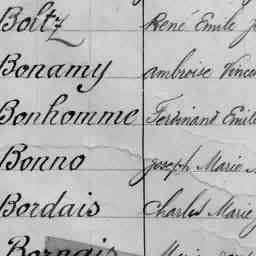 Boltz René Emile
Bonamy ambroise Vincent
Bonhomme Ferdinand Emile
Bonno Joseph Marie
Bordais Charles Marie